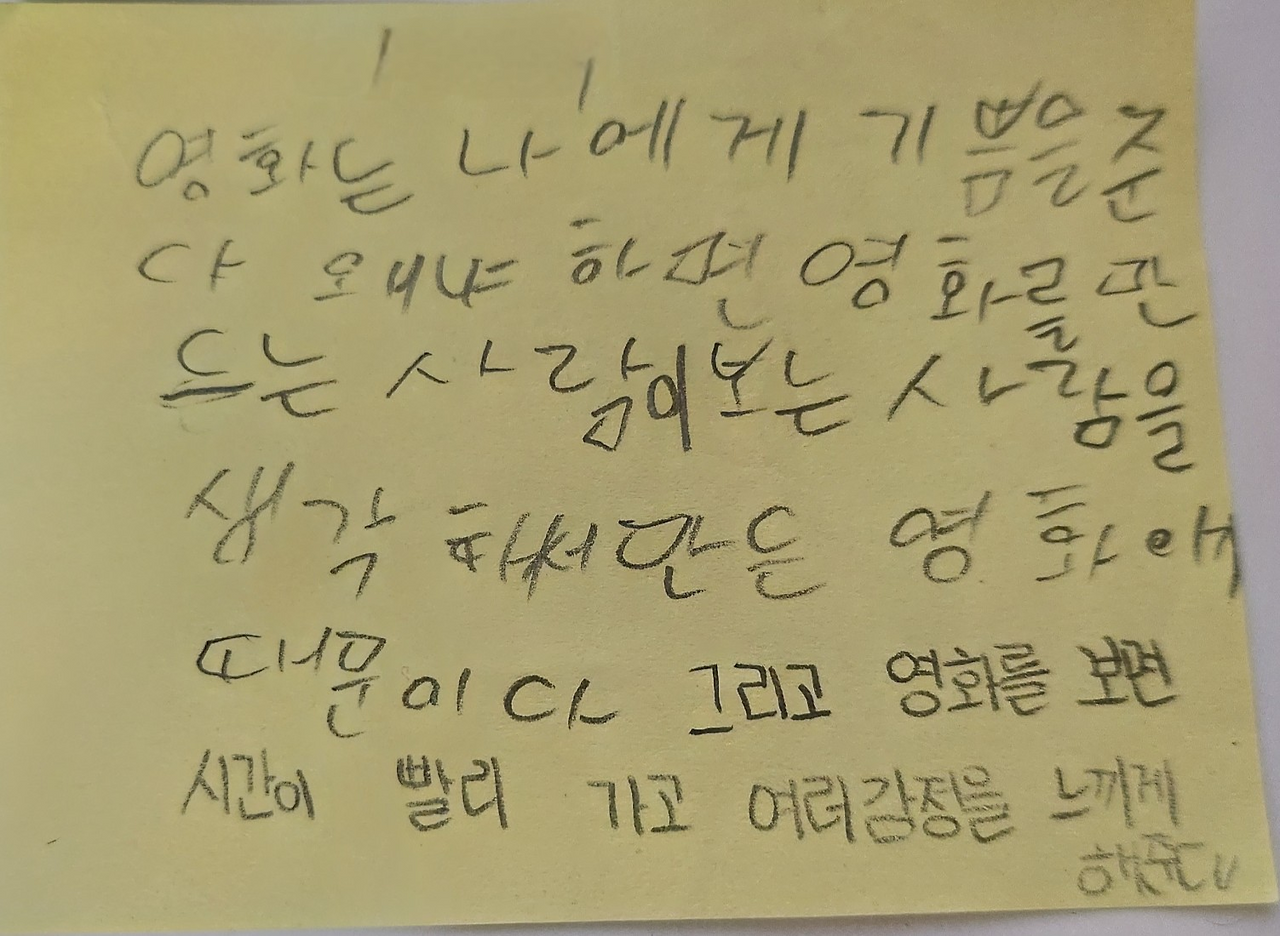 영화는 나에게 기쁨을준
다 왜냐 하면 영화를만
드는 사람이보는 사람을
생각 해서만든 영화에
때문이다 그리고 영화를 보면
시간이 빨리 가고 여러감정을 느끼게
해준다